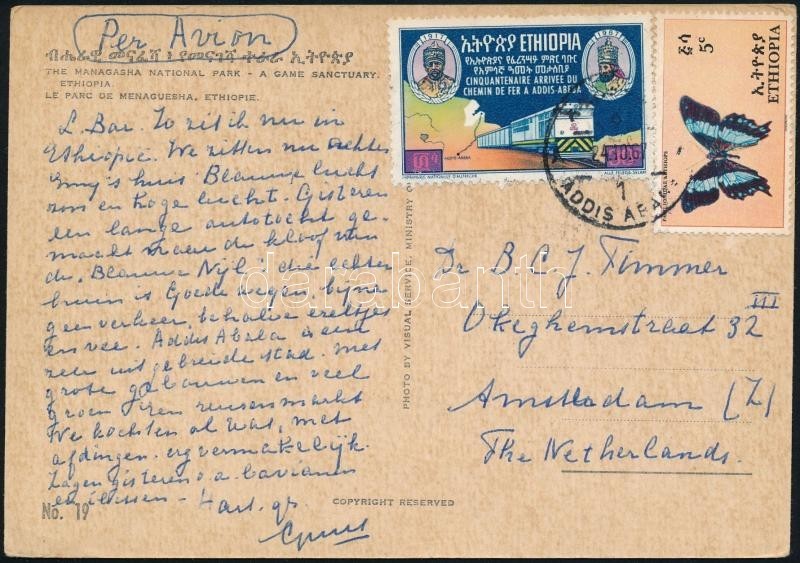 Per Avion
ብሔራዊ መናፈሻ
THE MANAGASHA NATIONAL PARK - A GAME SANCTUARY.
ETHIOPIA.
LE PARC DE MENAGUESHA, ETHIOPIE.
1917
1967
ኢትዮጵያ ETHIOPIA
CINQUANTENAIRE ARRIVÉE DU
CHEMIN DE FER A ADDIS-ABEBA
ADDIS-ABEBA
IMPRIMERIE NATIONALE D'AUTRICHE
ሿሚ 5c
ኢትዮጵያ
ETHIOPIA
ADDIS ABABA
1
L. Bar. Zo zit ik nu in
Ethiopië. We zitten nu achter
huis. Blauwe lucht
zon en hoge lucht. Gisteren
een lange autotocht ge-
maakt naar de kloof van
de "Blauwe Nijl", die echter
bruin is. Goede wegen, bijna
geen verkeer, behalve ezeltjes
en vee. Addis Abeba is een
zeer uitgebreide stad. met
grote gebouwen en veel
groen. Een reuzenmarkt
We kochten al wat, met
afdingen. erg vermakelijk.
Zagen gisteren o.a. bavianen
en ibissen - Hart. gr.
No. 19
COPYRIGHT RESERVED
PHOTO BY VISUAL SERVICE, MINISTRY O
Dr B.C.J. Timmer
Okeghemstraat 32 III
Amsterdam (Z)
The Netherlands.
darabanth